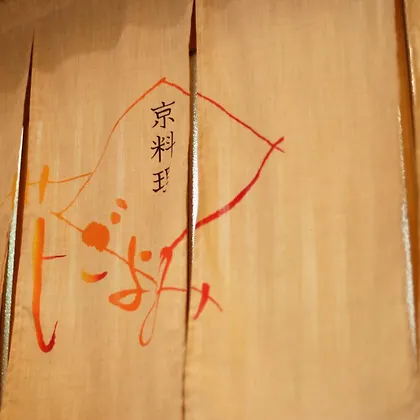 京料理
花ごよみ